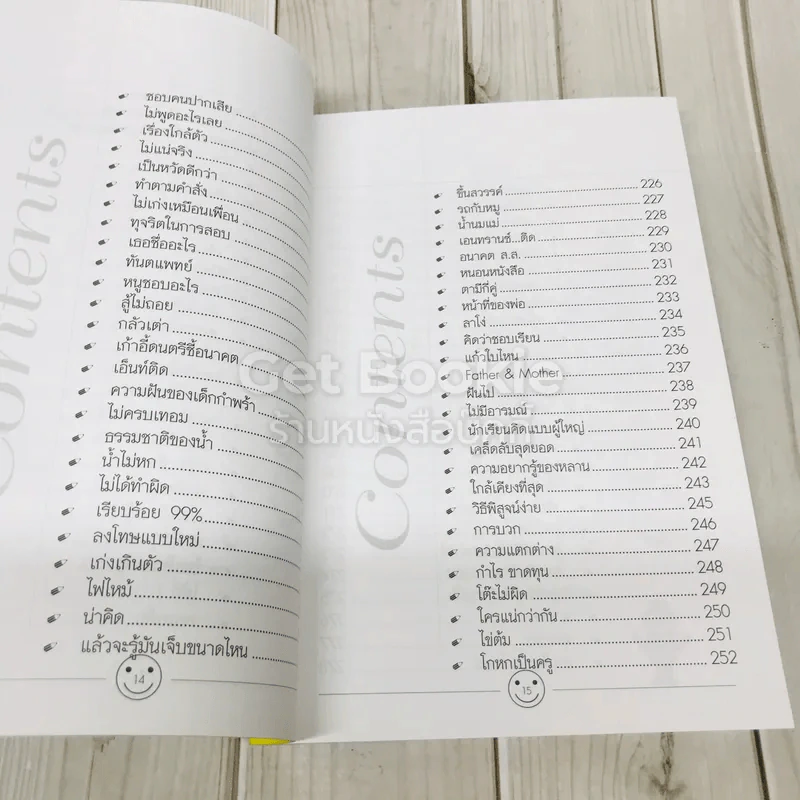 Contents
ชอบคนปากเสีย
ไม่พูดอะไรเลย
เรื่องใกล้ตัว
ไม่แน่จริง
เป็นหวัดดีกว่า
ทำตามคำสั่ง
ไม่เก่งเหมือนเพื่อน
ทุจริตในการสอบ
เธอชื่ออะไร
ทันตแพทย์
หนูชอบอะไร
สู้ไม่ถอย
กลัวเต่า
เก้าอี้ดนตรีชี้อนาคต
เอ็นท์ติด
ความฝันของเด็กกำพร้า
ไม่ครบเทอม
ธรรมชาติของน้ำ
น้ำไม่หก
ไม่ได้ทำผิด
เรียบร้อย 99%
ลงโทษแบบใหม่
เก่งเกินตัว
ไฟไหม้
น่าคิด
แล้วจะรู้มันเจ็บขนาดไหน
14
Contents
ขึ้นสวรรค์ 226
รถกับหมู 227
น้ำนมแม่ 228
เอนทรานซ์...ติด 229
อนาคต ส.ส. 230
หนอนหนังสือ 231
ตามีกี่คู่ 232
หน้าที่ของพ่อ 233
ลาโง่ 234
คิดว่าชอบเรียน 235
แก้วใบไหน 236
Father & Mother 237
ฝันไป 238
ไม่มีอารมณ์ 239
นักเรียนคิดแบบผู้ใหญ่ 240
เคล็ดลับสุดยอด 241
ความอยากรู้ของหลาน 242
ใกล้เคียงที่สุด 243
วิธีพิสูจน์ง่าย 245
การบวก 246
ความแตกต่าง 247
กำไร ขาดทุน 248
โต๊ะไม่ผิด 249
ใครแน่กว่ากัน 250
ไข่ต้ม 251
โกหกเป็นครู 252
15
Get Bookie